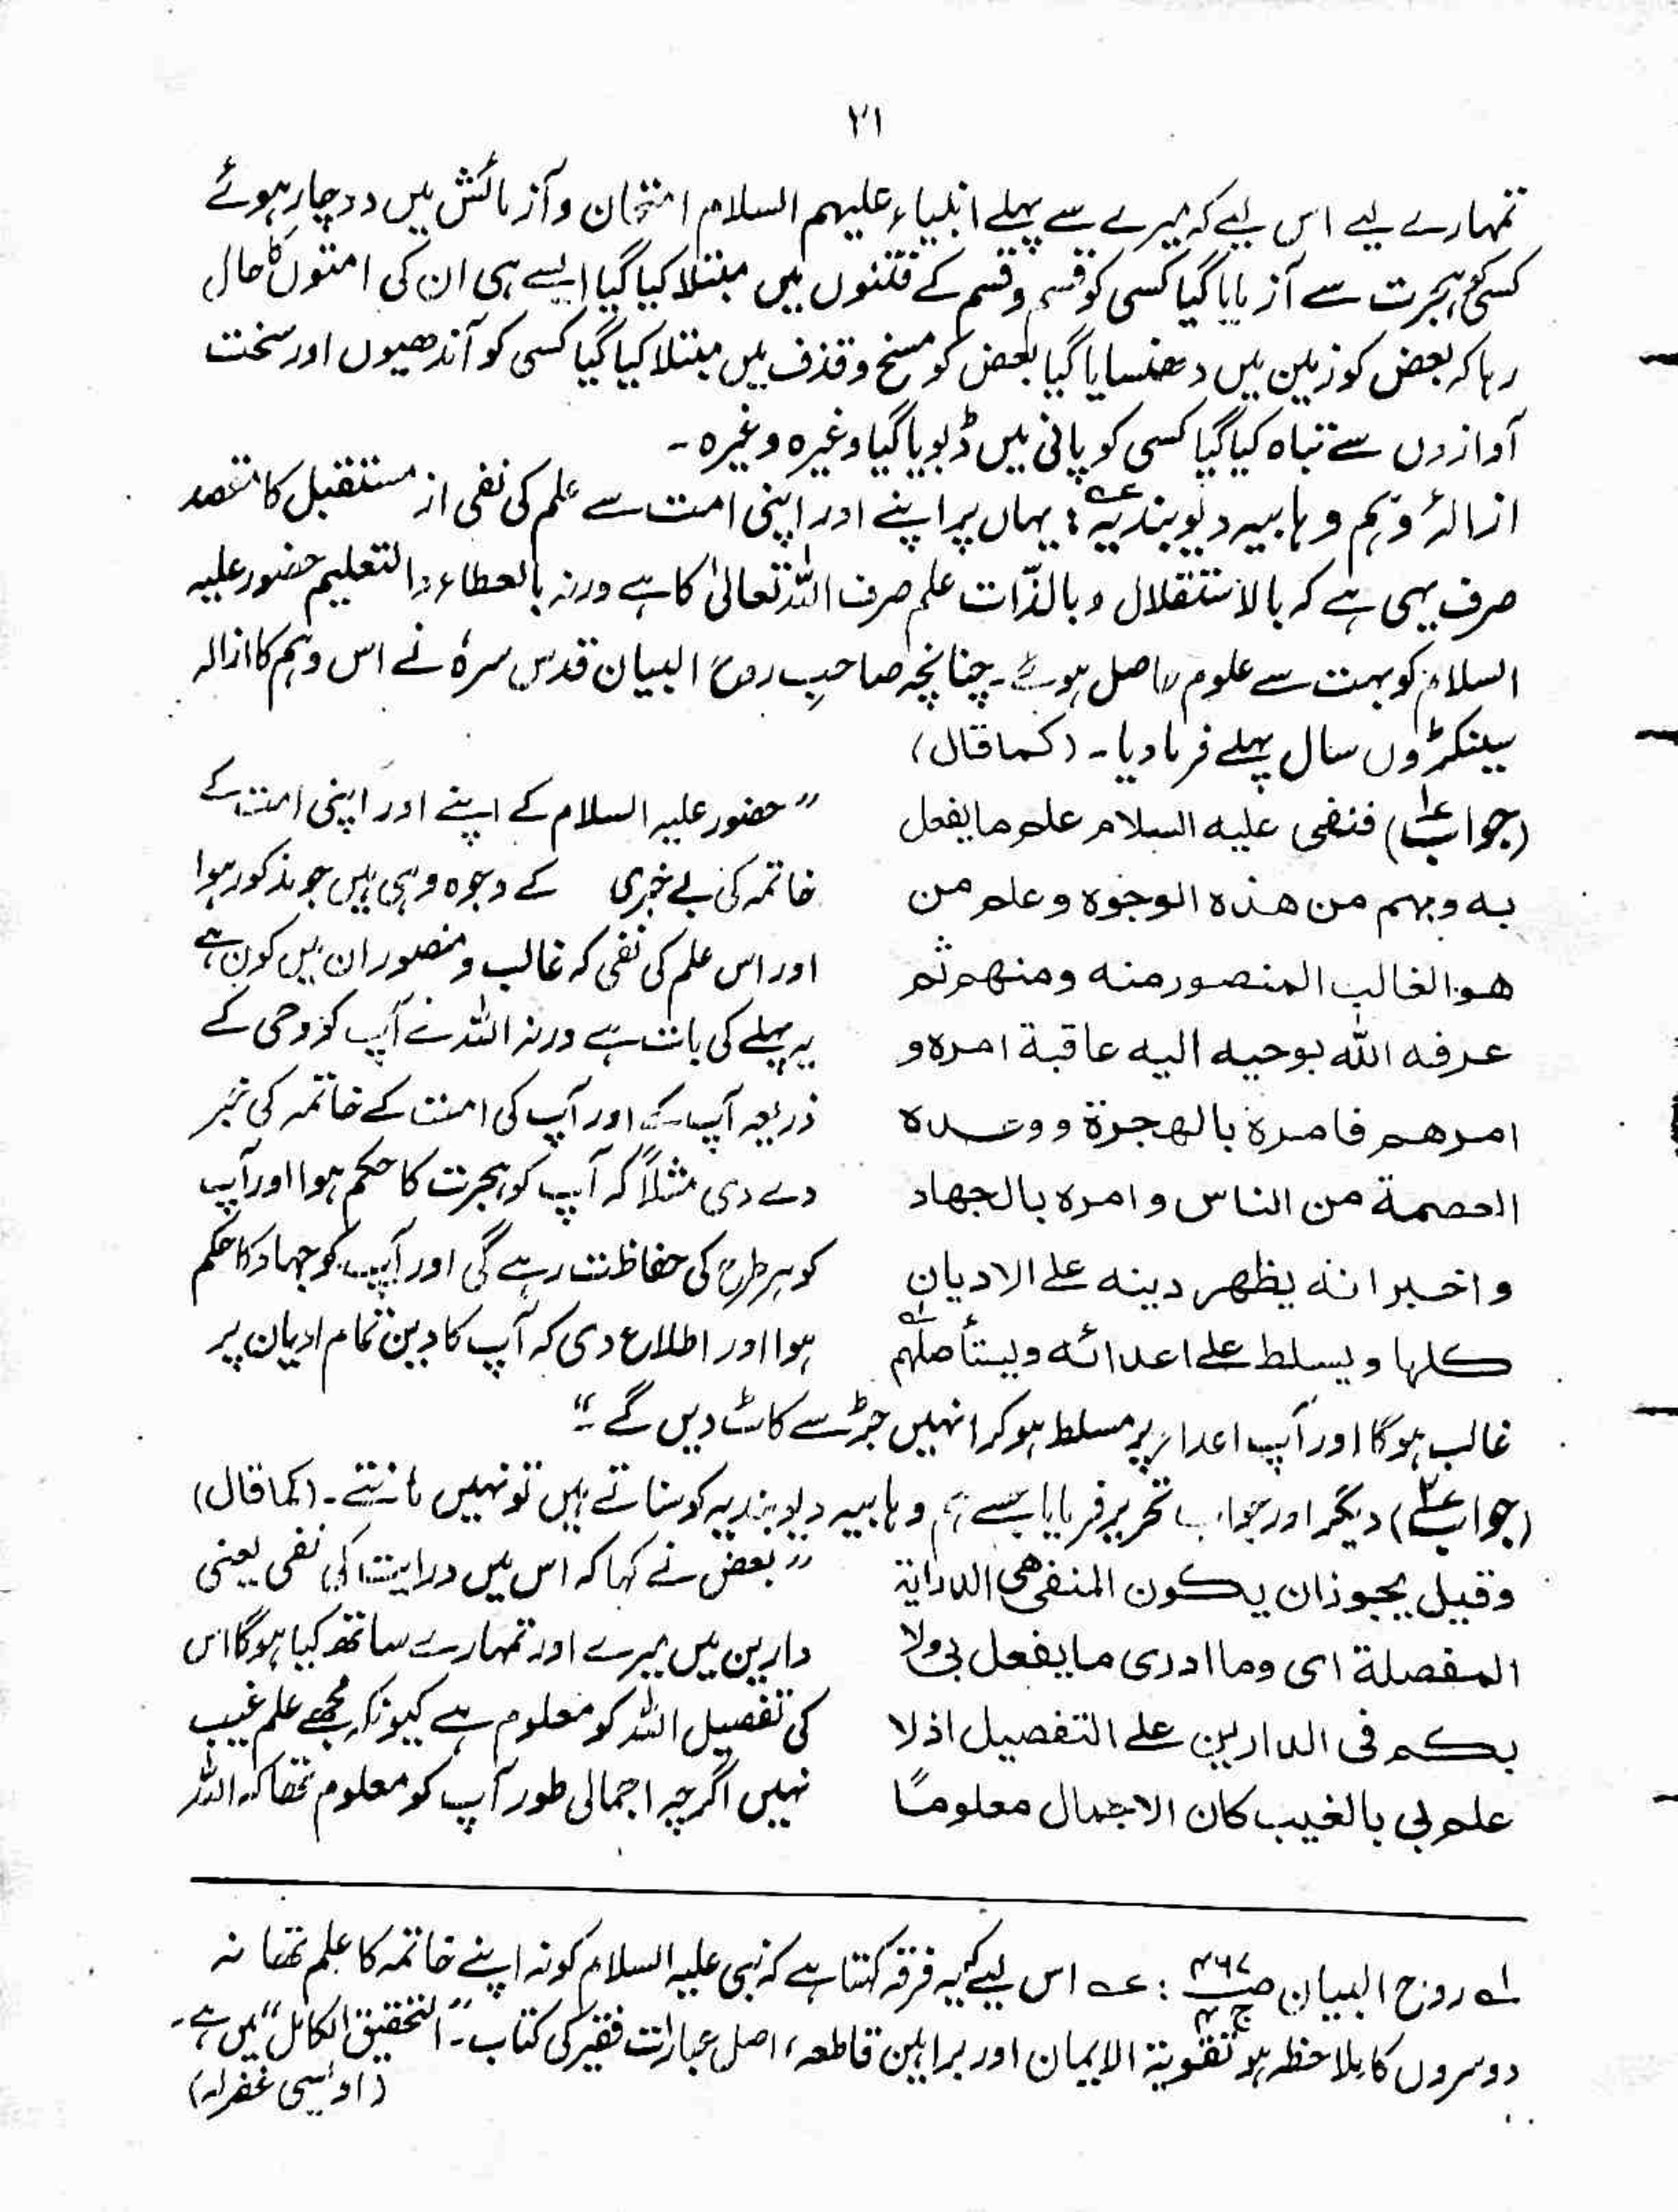 ۲۱
تمہارے لیے اس لیے کہ میرے سے پہلے انبیاء علیہم السلام امتحان و آزمائش میں دوچار ہوئے
کسی کو ہجرت سے آزمایا گیا کسی کو قسم و قسم کے فتنوں میں مبتلا کیا گیا ایسے ہی ان کی امتوں کا حال
رہا کہ بعض کو زمین میں دھنسایا گیا بعض کو مسخ و قذف میں مبتلا کیا گیا کسی کو آندھیوں اور سخت
آوازوں سے تباہ کیا گیا کسی کو پانی میں ڈبویا گیا وغیرہ وغیرہ ۔
ازالۂ وہم وہابیہ دیوبندیہ : یہاں پر اپنے اور اپنی امت سے علم کی نفی از مستقبل کا مقصد
صرف یہی ہے کہ بالاستقلال و بالذّات علم صرف اللہ تعالیٰ کا ہے ورنہ بالعطاء والتعلیم حضور علیہ
السلام کو بہت سے علوم حاصل ہوئے ۔ چنانچہ صاحبِ روح البیان قدس سرہٗ نے اس وہم کا ازالہ
سینکڑوں سال پہلے فرما دیا ۔ (کما قال)
(جواب ۱) فنفی علیہ السلام علم ما یفعل
بہ وبہم من ھذہ الوجوہ وعلم من
ھو الغالب المنصور منہ ومنھم ثم
عرفہ اللہ بوحیہ الیہ عاقبۃ امرہ و
امرھم فامرہ بالھجرۃ ووعدہ
العصمۃ من الناس وامرہ بالجھاد
واخبر انہ یظھر دینہ علی الادیان
کلہا ویسلط علی اعدائہ ویستأصلہم ۱
” حضور علیہ السلام کے اپنے اور اپنی امت کے
خاتمہ کی بے خبری کے وجوہ وہی ہیں جو مذکور ہوا
اور اس علم کی نفی کہ غالب و منصور ان میں کون ہے
یہ پہلے کی بات ہے ورنہ اللہ نے آپ کو وحی کے
ذریعہ آپ کے اور آپ کی امت کے خاتمہ کی خبر
دے دی مثلاً کہ آپ کو ہجرت کا حکم ہوا اور آپ
کو ہر طرح کی حفاظت رہے گی اور آپ کو جہاد کا حکم
ہوا اور اطلاع دی کہ آپ کا دین تمام ادیان پر
غالب ہوگا اور آپ اعداء پر مسلط ہو کر انہیں جڑ سے کاٹ دیں گے ۔“
(جواب ۲) دیگر اور جواب تحریر فرمایا جسے ہم وہابیہ دیوبندیہ کو سناتے ہیں تو نہیں مانتے ۔ (کما قال)
وقیل یجوز ان یکون المنفی ھی الدرایۃ
المفصلۃ ای وما ادری ما یفعل بی ولا
بکم فی الدارین علی التفصیل اذ لا
علم لی بالغیب کان الاجمال معلومًا
” بعض نے کہا کہ اس میں درایت کی نفی یعنی
دارین میں میرے اور تمہارے ساتھ کیا ہوگا اس
کی تفصیل اللہ کو معلوم ہے کیونکہ مجھے علم غیب
نہیں اگرچہ اجمالی طور آپ کو معلوم تھا کہ اللہ
۱ روح البیان ص ۴۶۷ ج : عہ اس لیے کہ یہ فرقہ کہتا ہے کہ نبی علیہ السلام کو نہ اپنے خاتمہ کا علم تھا نہ
دوسروں کا ملاحظہ ہو تقویۃ الایمان اور براہین قاطعہ، اصل عبارات فقیر کی کتاب ۔ ”التحقیق الکامل“ میں ہے ۔
(اویسی غفرلہ)